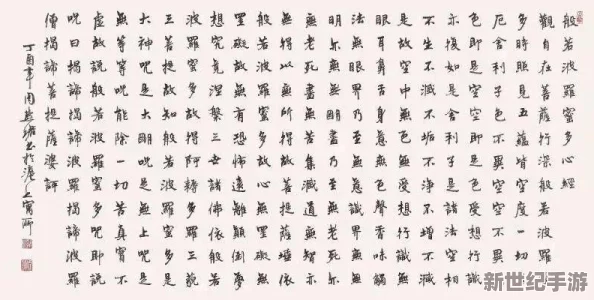 般若波羅蜜多心經
觀自在菩薩行深般若波羅蜜
多時照見五蘊皆空度一切苦
厄舍利子色不異空空不異色
色即是空空即是色受想行識
亦復如是舍利子是諸法空相
不生不滅不垢不淨不增不減
是故空中無色無受想行識無
眼耳鼻舌身意無色聲香味觸
法無眼界乃至無意識界無無
明亦無無明盡乃至無老死亦
無老死盡無苦集滅道無智亦
無得以無所得故菩提薩埵依
般若波羅蜜多故心無罣礙無
罣礙故無有恐怖遠離顛倒夢
想究竟涅槃三世諸佛依般若
波羅蜜多故得阿耨多羅三藐
三菩提故知般若波羅蜜多是
大神咒是大明咒是無上咒是
無等等咒能除一切苦真實不
虛故說般若波羅蜜多咒即說
咒曰揭諦揭諦波羅揭諦波羅
僧揭諦菩提薩婆訶
丁酉年周
新世纪手游